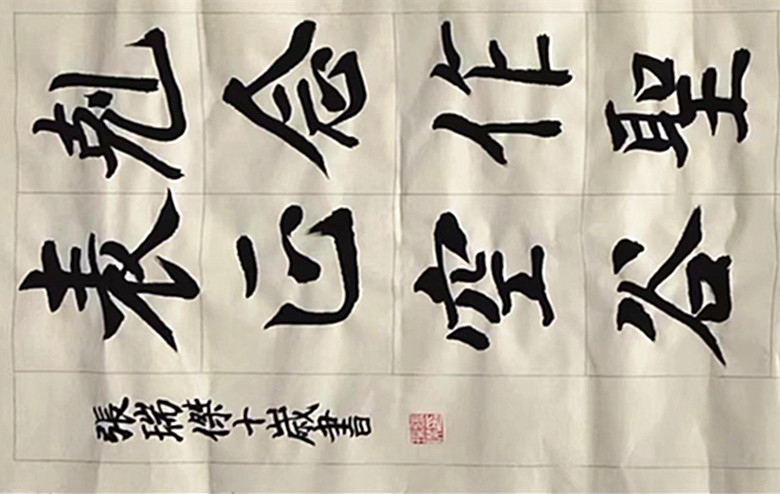 剋念作聖
表正空谷
張瑞傑十歲書